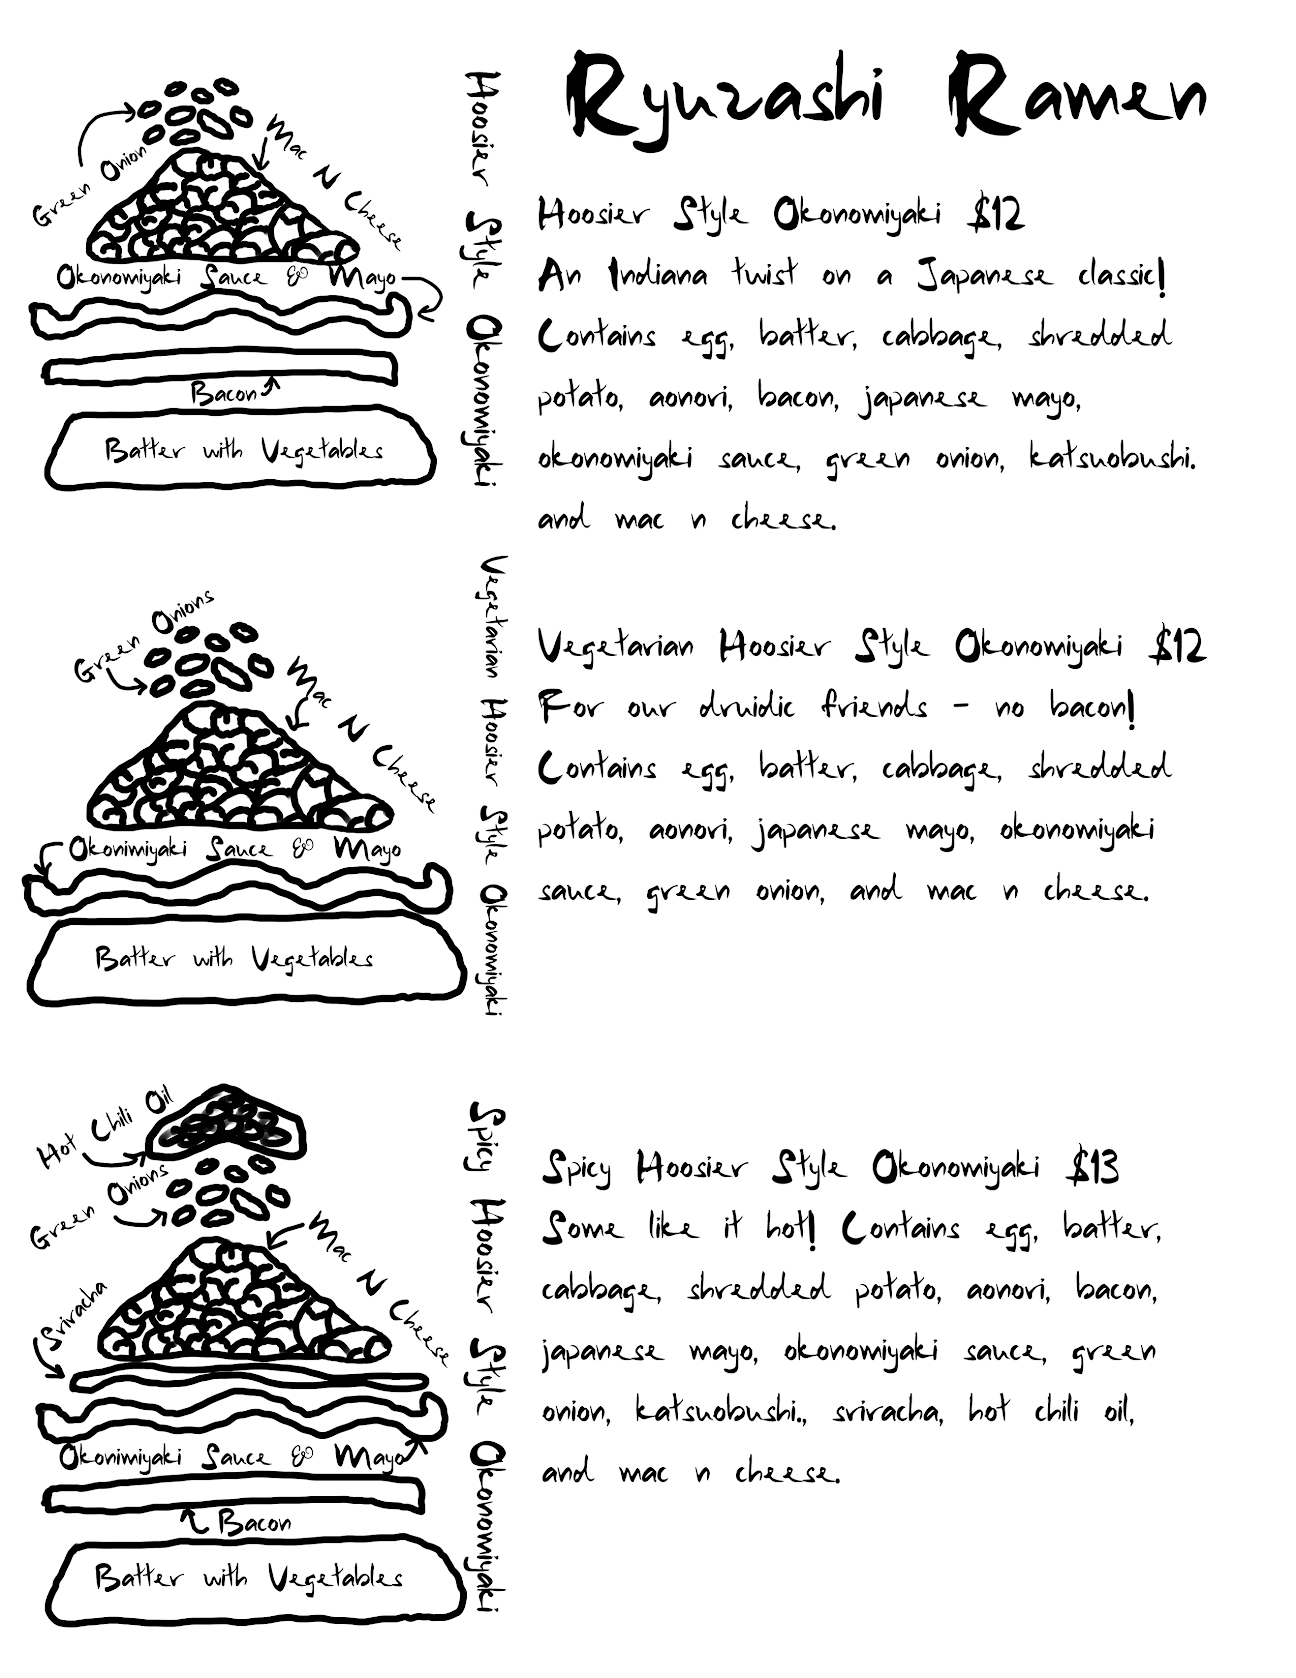 Ryuzashi Ramen
Green Onion
Mac N Cheese
Okonomiyaki Sauce & Mayo
Bacon
Batter with Vegetables
Hoosier Style Okonomiyaki
Hoosier Style Okonomiyaki $12
An Indiana twist on a Japanese classic!
Contains egg, batter, cabbage, shredded
potato, aonori, bacon, japanese mayo,
okonomiyaki sauce, green onion, katsuobushi.
and mac n cheese.
Green Onions
Mac N Cheese
Okonimiyaki Sauce & Mayo
Batter with Vegetables
Vegetarian Hoosier Style Okonomiyaki
Vegetarian Hoosier Style Okonomiyaki $12
For our druidic friends - no bacon!
Contains egg, batter, cabbage, shredded
potato, aonori, japanese mayo, okonomiyaki
sauce, green onion, and mac n cheese.
Hot Chili Oil
Green Onions
Mac N Cheese
Sriracha
Okonimiyaki Sauce & Mayo
Bacon
Batter with Vegetables
Spicy Hoosier Style Okonomiyaki
Spicy Hoosier Style Okonomiyaki $13
Some like it hot! Contains egg, batter,
cabbage, shredded potato, aonori, bacon,
japanese mayo, okonomiyaki sauce, green
onion, katsuobushi., sriracha, hot chili oil,
and mac n cheese.